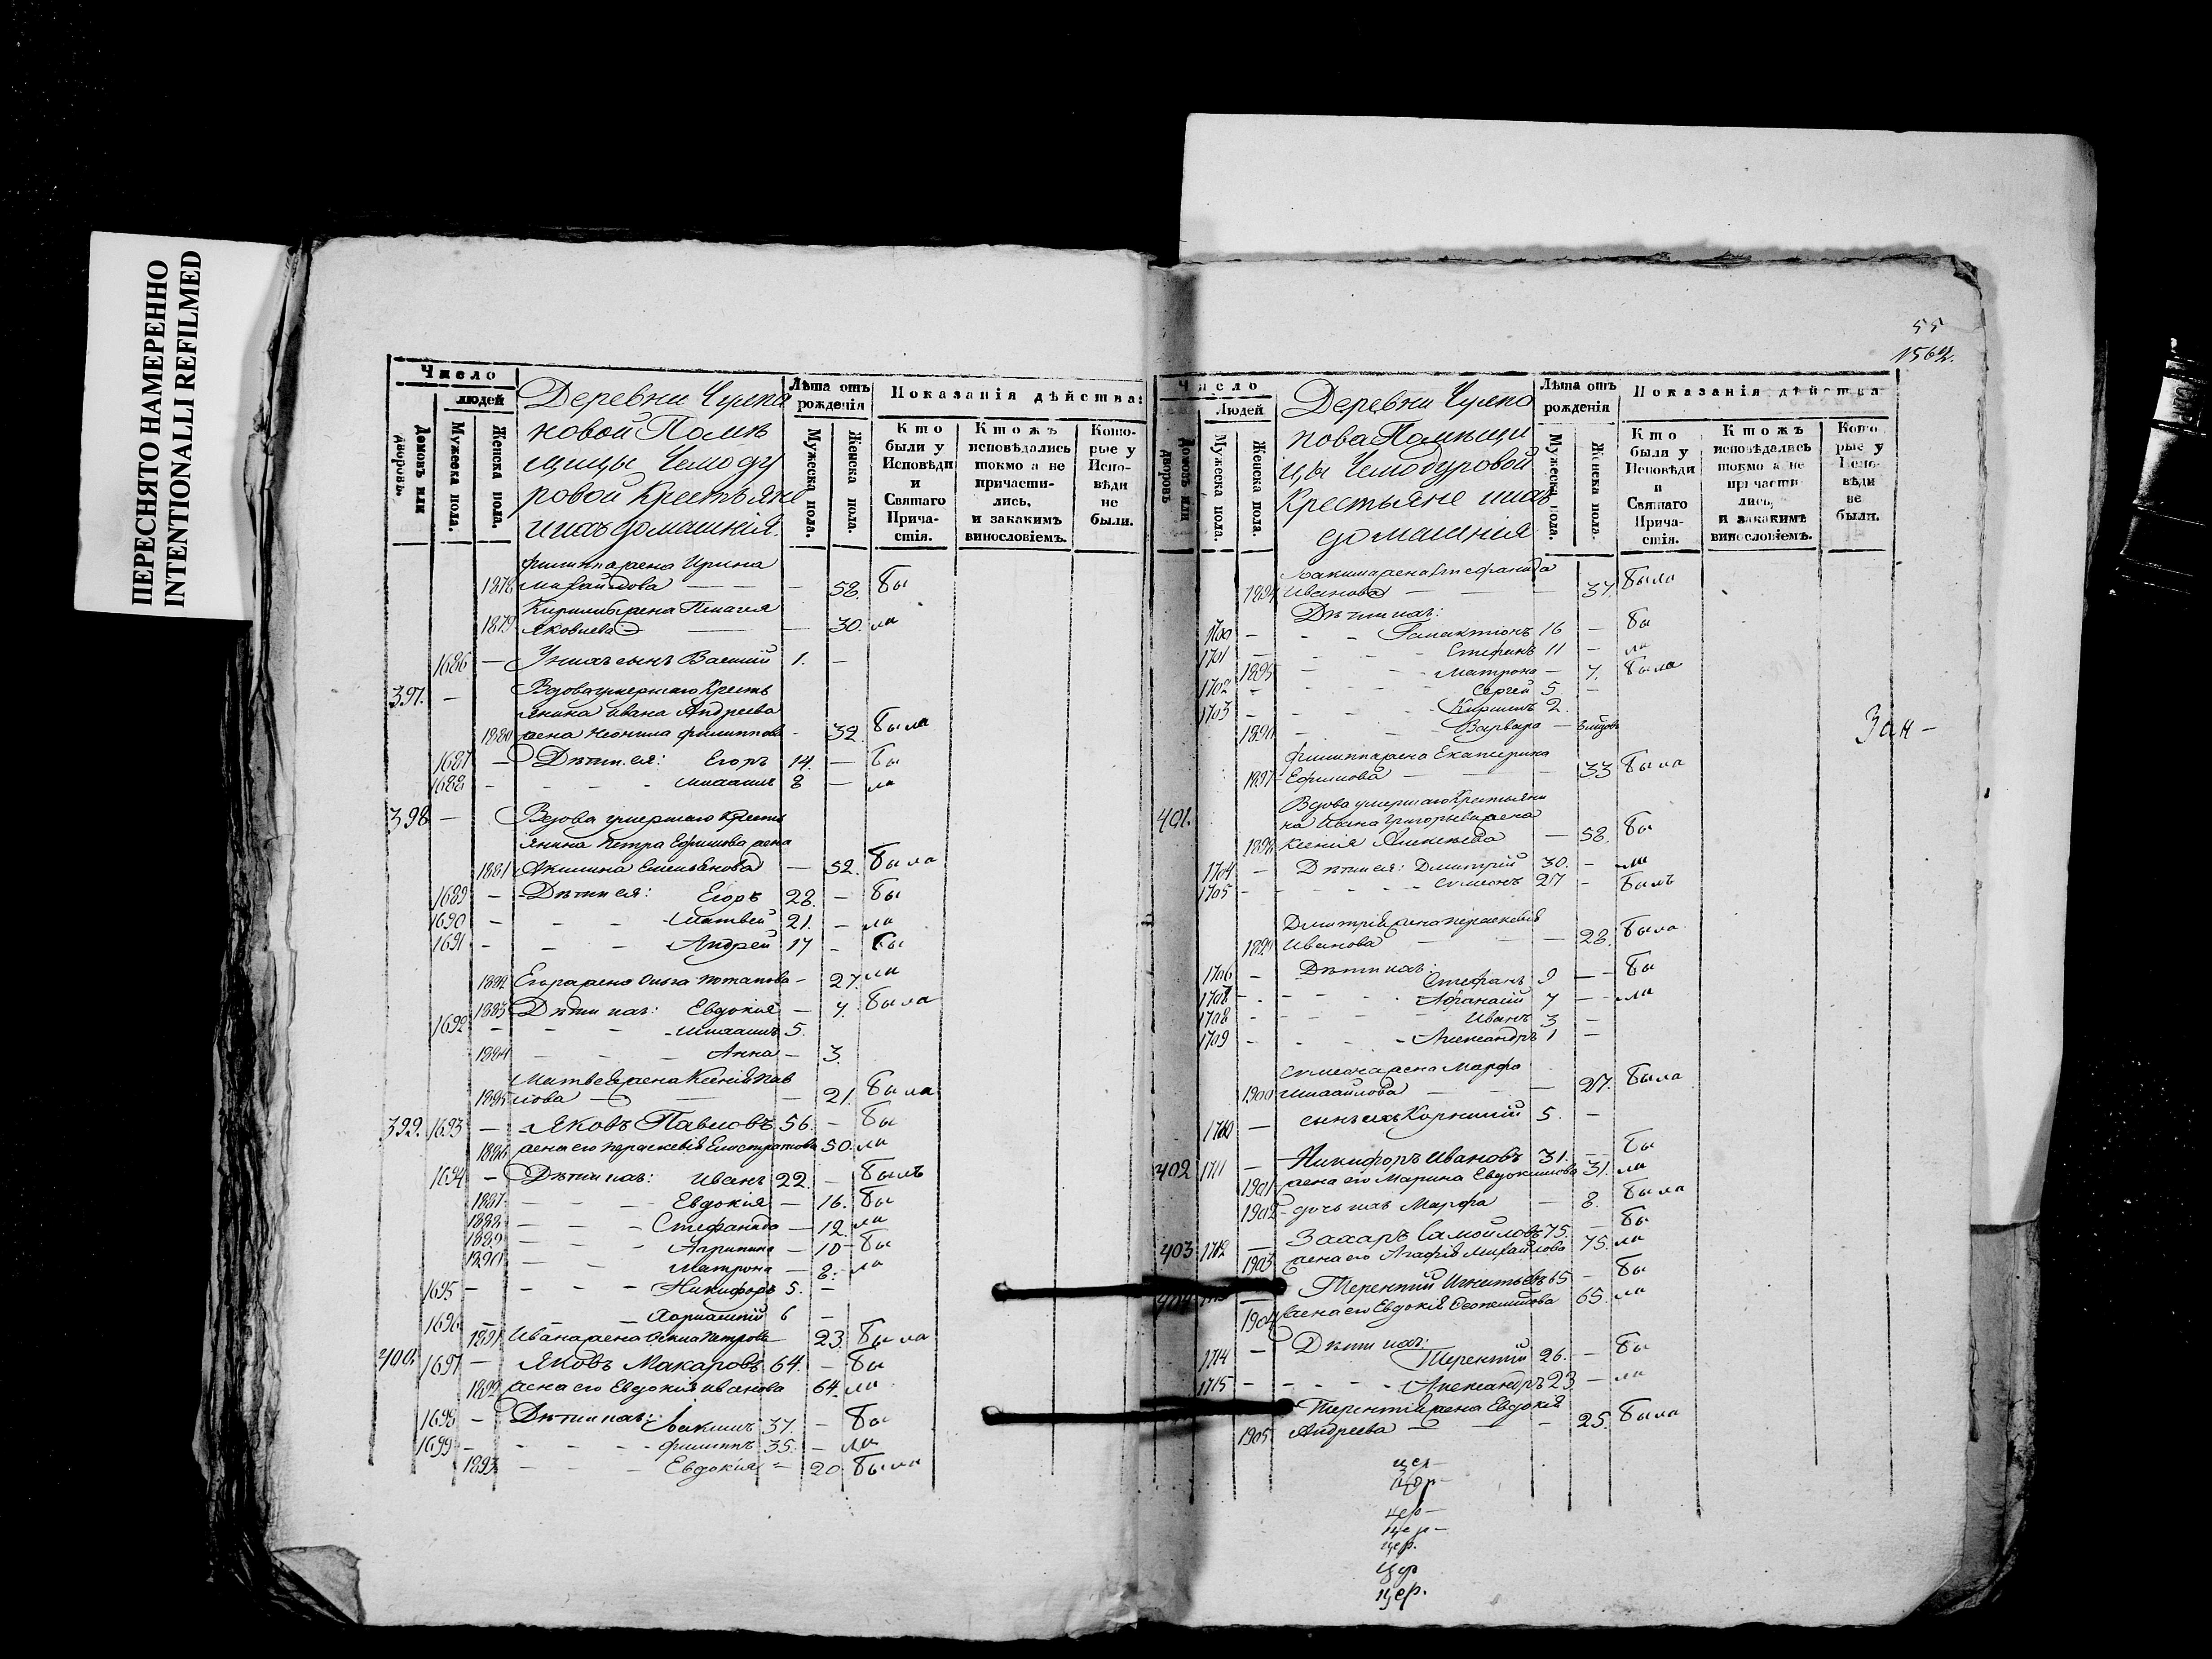 ПЕРЕСНЯТО НАМЕРЕННО
INTENTIONALLI REFILMED
Число
людей
Домовъ или дворовъ.
Мужеска пола.
Женска пола.
Деревни Чулпа
новой Помѣ
щицы Чемоду
ровой Крестьяне
и ихъ домашнія.
Лѣта отъ рожденія
Мужеска пола.
Женска пола.
Показанія дѣйства:
Кто были у Исповѣди и Святаго Прича- стія.
Ктожъ исповѣдались токмо а не причасти- лись, и закакимъ винословіемъ.
Кото- рые у Испо- вѣди не были.
Филиппа жена Ирина
1878 Михайлова — — 58. Бы
Кирилы жена Пелагея
1879 Яковлева — — 30. ла
1686 — У нихъ сынъ Василий 1. —
397. — Вдова умершаго Кресть
янина Ивана Андреева
1880 жена Неонила Филиппова - 32. Была
1687 — Дѣти ея: Егоръ 14. — Бы
1688 - - - - Михаилъ 8 — ли
398 — Вдова умершаго Кресть
янина Петра Ефимова жена
1881 Акилина Емельянова — 52. Была
1689 — Дѣти ея: Егоръ 28. — Бы
1690 - - - Матвей 21. — ли
1691 - - - Андрей 17 - Бы
1882 Егора жена Ольга Потапова - 27. ли
1883 Дѣти ихъ: Евдокия — 7. Была
1692 - - - - Михаилъ 5.
1884 - - - Анна - 3.
Матвея жена Ксения Пав
1885 лова — — 21. Была
399. 1693 — Яковъ Павловъ 56. - Бы
1886 жена его Параскевия Елистратова 50. ли
1694 — Дѣти ихъ: Иванъ 22. - Былъ
1887 - - - Евдокия — 16. Бы
1888 - - - Стефанида — 12. ли
1889 - - - Агрипина — 10 Бы
1890 - - Матрона — 8. ла
1695 - - - - Никифоръ 5. -
1696 - - - 6 -
1891 Ивана жена Петрова - 23. Была
400. 1697 — Яковъ Макаровъ 64. - Бы
1892 жена его Евдокия Иванова 64. ли
1698 - Дѣти ихъ: Иакимъ 37. - Бы
1699 - - - - Филиппъ 35. - ли
1893 - - - Евдокия - 20. Была
55
1562.
Число
Людей
Домовъ или дворовъ
Мужеска пола.
Женска пола.
Деревни Чулпа
нова Помѣщи
цы Чемодуровой
Крестьяне ихъ
домашнія
Лѣта отъ рожденія
Мужеска пола.
Женска пола.
Показанія дѣйства
Кто были у Исповѣди и Святаго Прича- стія.
Ктожъ исповѣдались токмо а не причасти- лись, и закакимъ винословіемъ.
Кото рые у Испо- вѣди не были.
Иакима жена Стефанида
1894 Иванова — — 37. Была
Дѣти ихъ:
1700 - - - Галактионъ 16 — Бы
1701 - - - Стефанъ 11 - ли
1895 - - - Матрона - 7. Была
1702 - - - Сергей 5 -
1703 - - - Кирилъ 2.
1896 - - Варвара —
Зан -
Филиппа жена Екатерина
1897 Ефимова — — 33 Была
401. Вдова умершаго Крестьяни
на Ивана Григорьева жена
1898 Ксения Алексѣева — 58. Бы
1704 - Дѣти ея: Дмитрий 30. - ли
1705 - - - - Симеонъ 27 - Былъ
Дмитрия жена Параскевия
1899 Иванова — — 28. Была
1706 - Дѣти ихъ: Стефанъ 9 — Бы
1707 - - - - Афанасий 7 - ли
1708 - - - - Иванъ 3 -
1709 - - - - Александръ 1 -
Симеона жена Марфа
1900 Михайлова — — 27. Была
1710 — сынъ ихъ Корнилий 5. -
402 1711 — Никифоръ Ивановъ 31. - Бы
1901 жена его Марина Евдокимова 31. ли
1902 дочь ихъ Марфа — 8. Была
403 1712 — Захаръ Самойловъ 75. - Бы
1903 жена его Агафия Михайлова 75. ли
404 1713 — Терентий Игнатьевъ 65 - Бы
1904 жена его Евдокия 65. ли
Дѣти ихъ:
1714 — Терентий 26. - Бы
1715 - - - - Александръ 23 - ли
Терентия жена Евдокия
1905 Андреева — - 25. Была
цер-
цер-
цер-
цер.
цер.